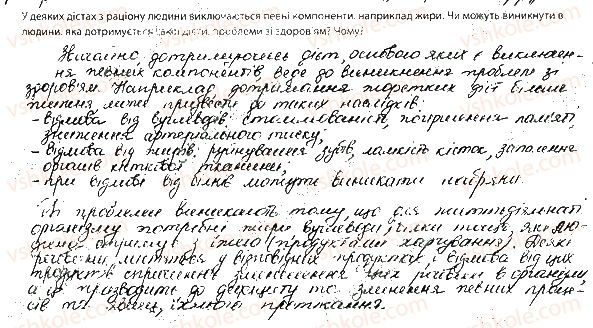 У деяких дієтах з раціону людини виключаються певні компоненти, наприклад жири. Чи можуть виникнути в
людини, яка дотримується такої дієти, проблеми зі здоров'ям? Чому?
Негативно, дотримуючись дієт, основою яких є виключен-
ня певних компонентів, веде до виникнення проблем зі
здоров'ям. Наприклад, дотримання жорстких дієт більше
тижня може призвести до таких наслідків:
- відмова від вуглеводів: стомлюваність, погіршення пам'яті
зниження артеріального тиску;
- відмова від жирів: руйнування зубів, ламкість кісток, запалення
органів кісткової тканини;
- при відмові від білків можуть виникати набряки.
Ці проблеми виникають тому, що для життєдіяльності
організму потрібні жири вуглеводи, білки тощо, які лю-
дина отримує з їжею (продуктами харчування). Деякі
речовини, містяться у відповідних продуктах, відмова від цих
продуктів спричиняє зменшення цих речовин в організмі
а це призводить до дефіциту та змінення певних проце-
сів та явищ, їхнього протікання.